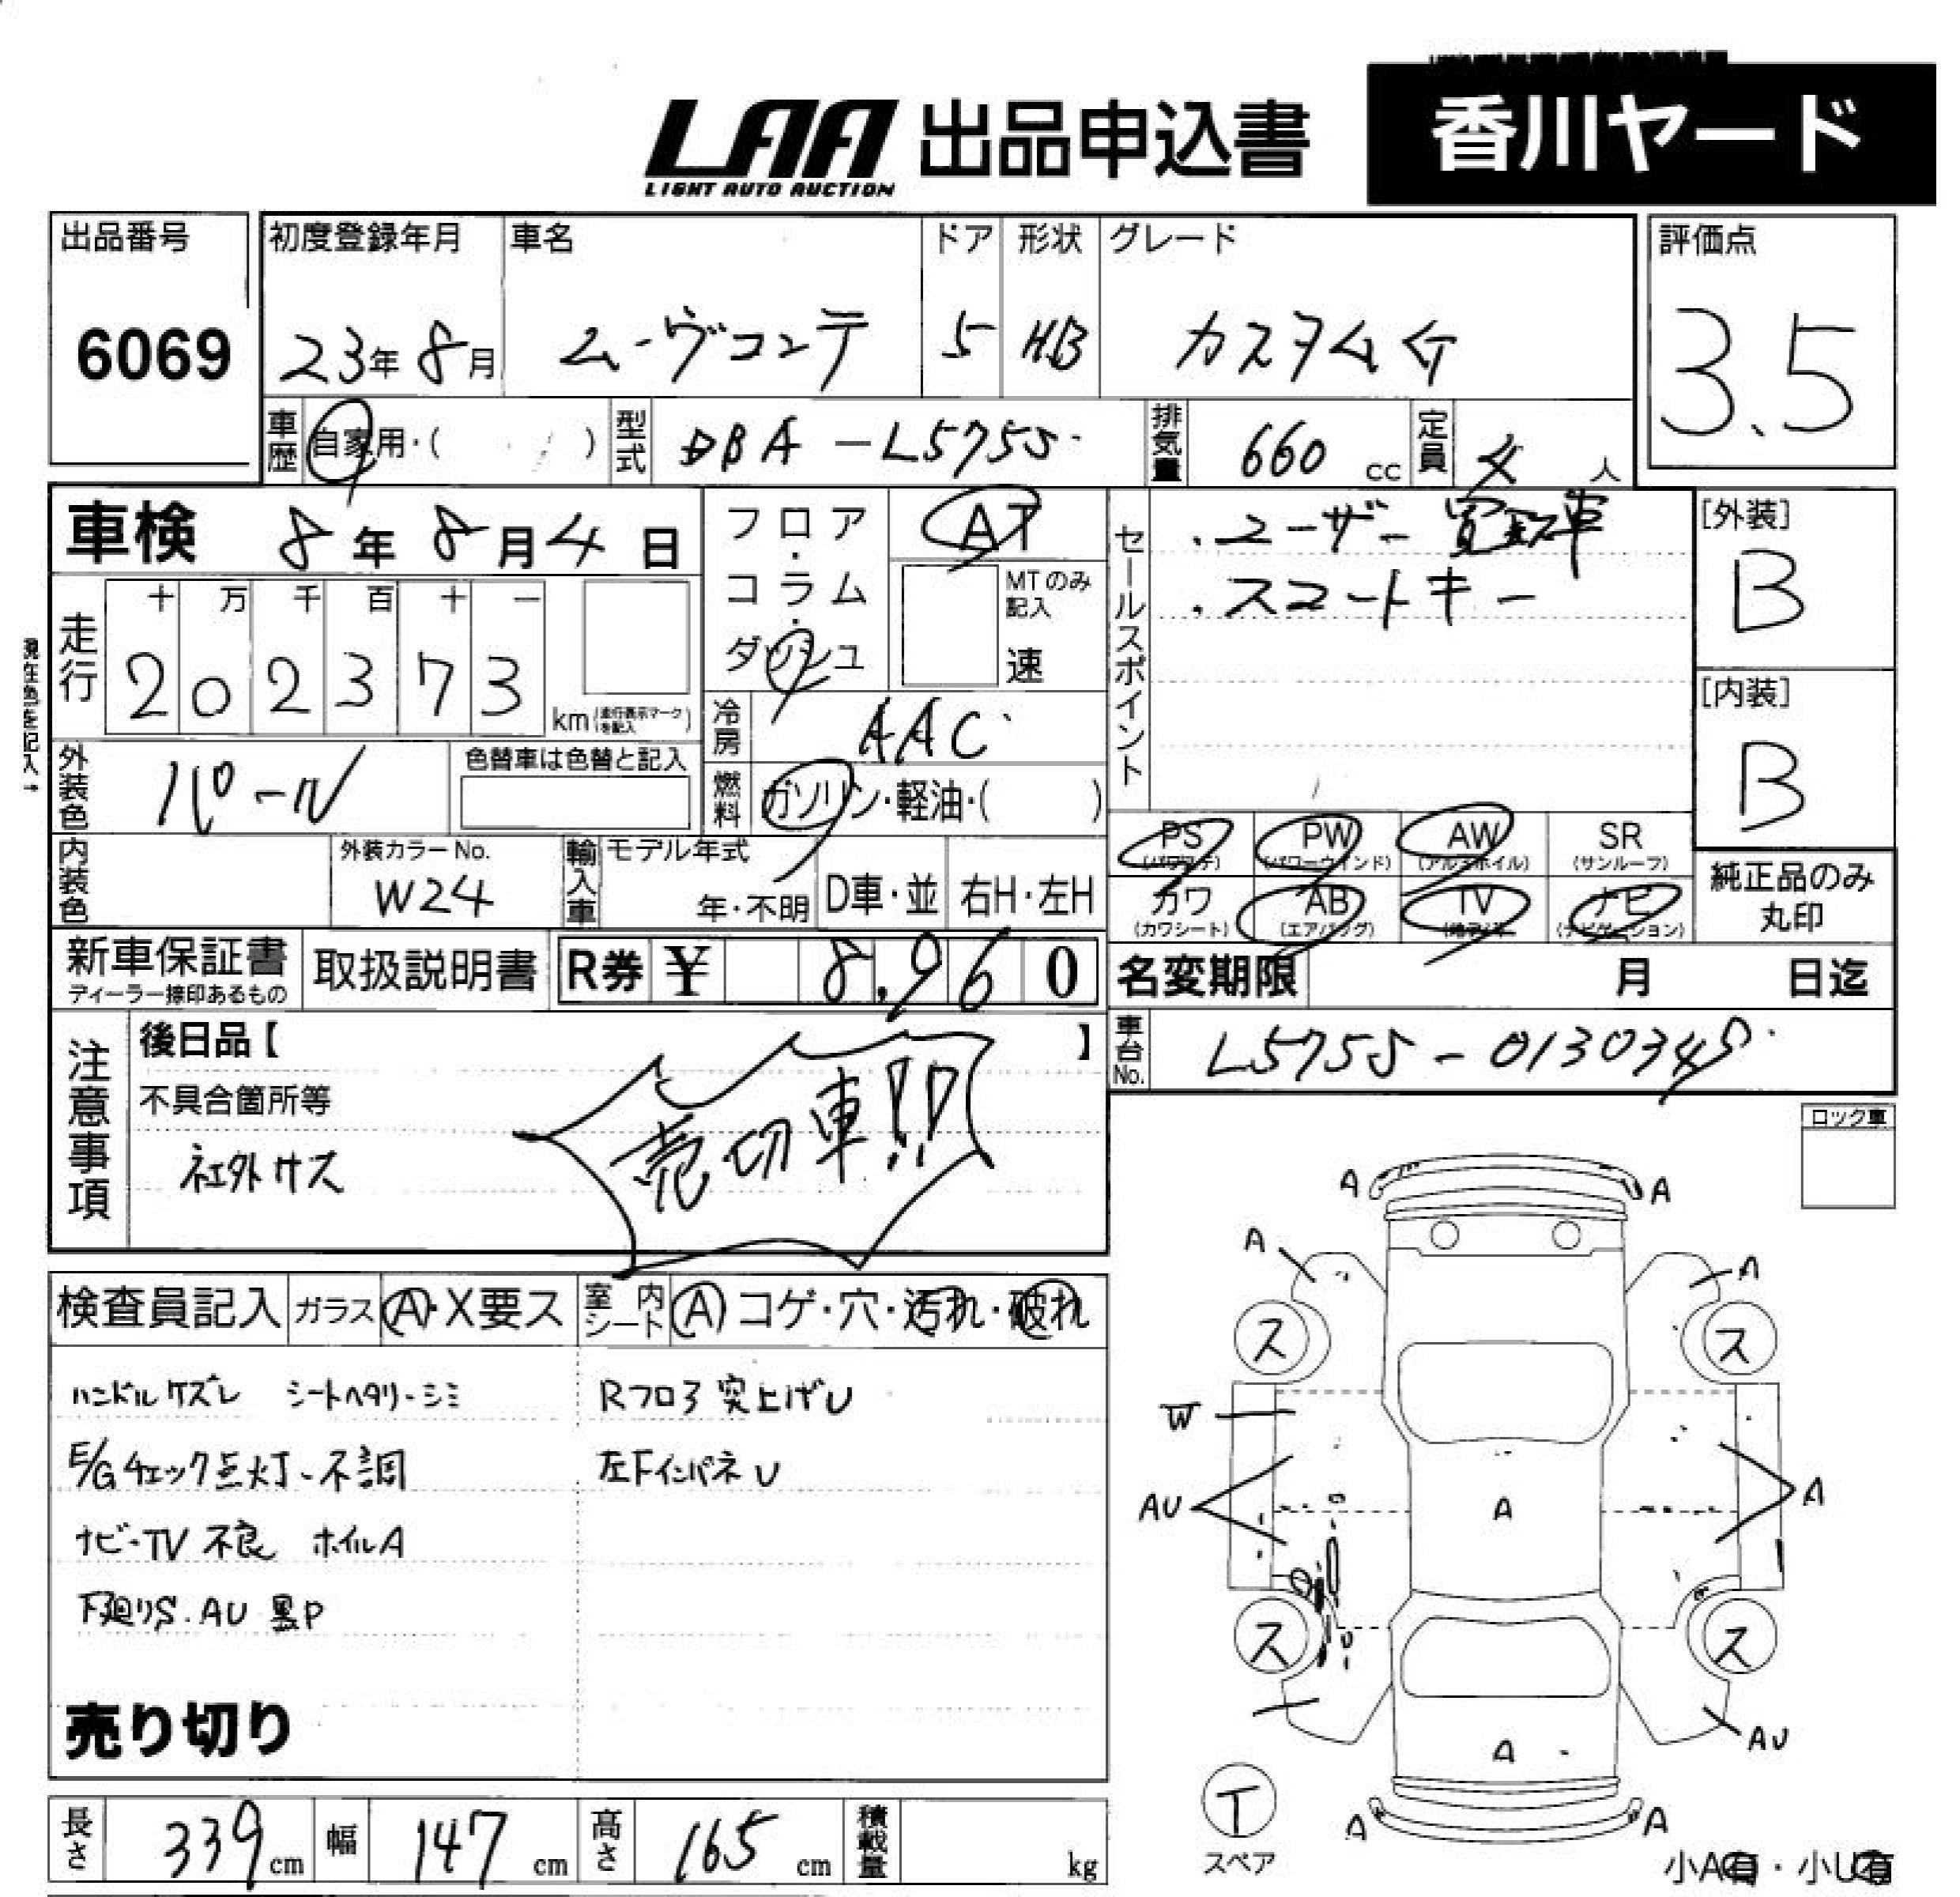 LAA 出品申込書 香川ヤード
LIGHT AUTO AUCTION
出品番号 初度登録年月 車名 ドア 形状 グレード 評価点
6069 23年8月 ムーヴコンテ 5 HB カスタム 3.5
車歴 自家用・( ) 型式 DBA-L575S 排気量 660 cc 定員 4 人
車検 8年8月4日 フロア・コラム・ダッシュ AT
MTのみ記入 速
走行 十 万 千 百 十 一
202373 km (走行表示マークを記入)
現在色を記入→
外装色 パール 色替車は色替と記入
冷房 AAC
燃料 ガソリン・軽油・( )
内装色 外装カラーNo. W24 輸入車 モデル年式 年・不明 D車・並 右H・左H
セールスポイント
・ユーザー買取車
・スマートキー
[外装] B
[内装] B
PS (パワステ) PW (パワーウインド) AW (アルミホイル) SR (サンルーフ)
カワ (カワシート) AB (エアバッグ) TV ナビ (ナビゲーション)
純正品のみ丸印
新車保証書 ディーラー捺印あるもの 取扱説明書 R券 ¥ 8,960 名変期限 月 日迄
注意事項 後日品【 】
車台No. L575S-0130345
不具合箇所等
社外サス
売切車!!
ロック車
検査員記入 ガラス A・X要ス 室内シート A コゲ・穴・汚れ・破れ
ハンドルケズレ シートヘタリ・シミ Rフロア突上げU
E/Gチェック点灯・不調 左FインパネU
ナビ・TV不良 ホイルA
下廻りS.AU 黒P
売り切り
A A
A A
ス ス
W
AU A A
ス ス
A AU
T
スペア
A A
小A有・小U有
長さ 339 cm 幅 147 cm 高さ 165 cm 積載量 kg